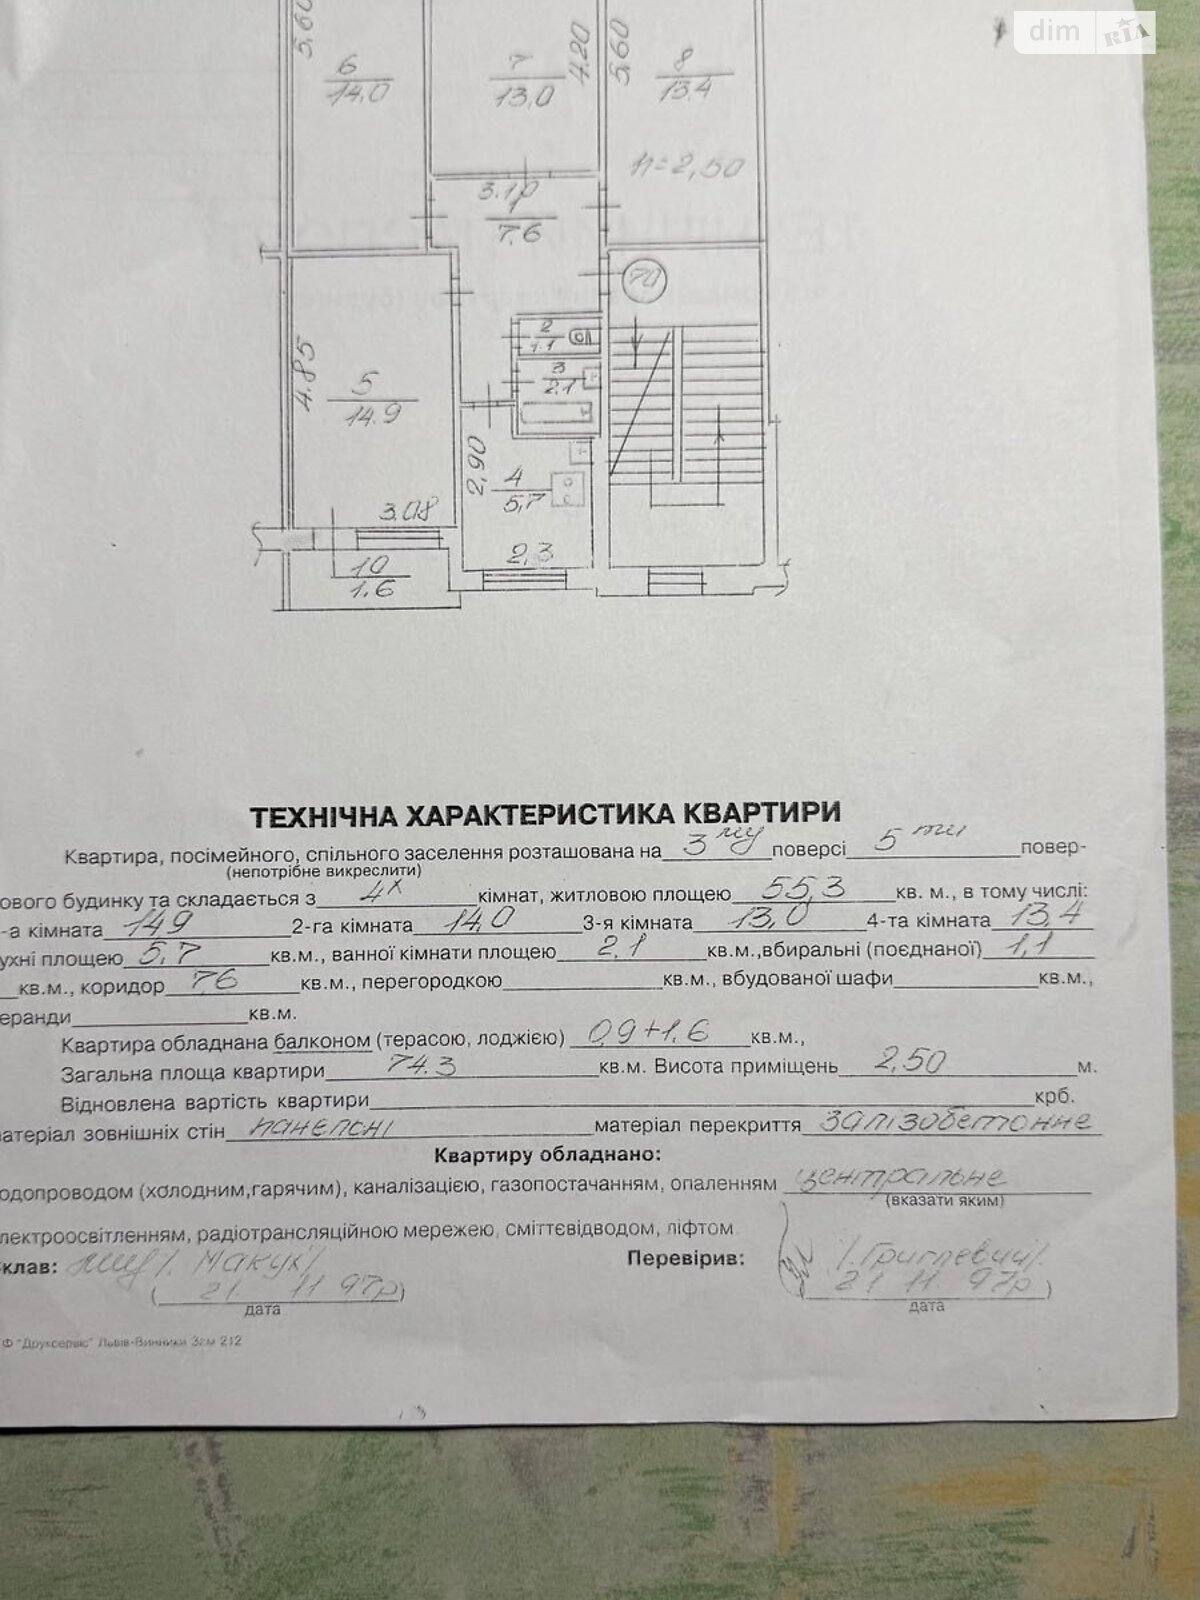 dim RIA
5,60
6
14,0
7
13,0
4,20
5,60
8
13,4
h=2,50
3.10
1
7,6
70
2
1.1
3
2,1
4,85
5
14.9
2,90
4
5,7
3.08
2,3
10
1.6
ТЕХНІЧНА ХАРАКТЕРИСТИКА КВАРТИРИ
Квартира, посімейного, спільного заселення розташована на 3му поверсі 5 ти повер-
(непотрібне викреслити)
ового будинку та складається з 4х кімнат, житловою площею 55,3 кв. м., в тому числі:
-а кімната 149 2-га кімната 14,0 3-я кімната 13,0 4-та кімната 13,4
ухні площею 5,7 кв.м., ванної кімнати площею 2,1 кв.м.,вбиральні (поєднаної) 1,1
кв.м., коридор 7,6 кв.м., перегородкою кв.м., вбудованої шафи кв.м.,
еранди кв.м.
Квартира обладнана балконом (терасою, лоджією) 0,9+1,6 кв.м.,
Загальна площа квартири 74.3 кв.м. Висота приміщень 2,50 м.
Відновлена вартість квартири крб.
атеріал зовнішніх стін панельні матеріал перекриття залізобетонне
Квартиру обладнано:
одопроводом (холодним,гарячим), каналізацією, газопостачанням, опаленням центральне
(вказати яким)
лектроосвітленням, радіотрансляційною мережею, сміттєвідводом, ліфтом
клав: Перевірив:
( 21. 11 97р ) ( 21 11 97р. )
дата дата
Ф "Друксервіс" Львів-Винники Зам 212